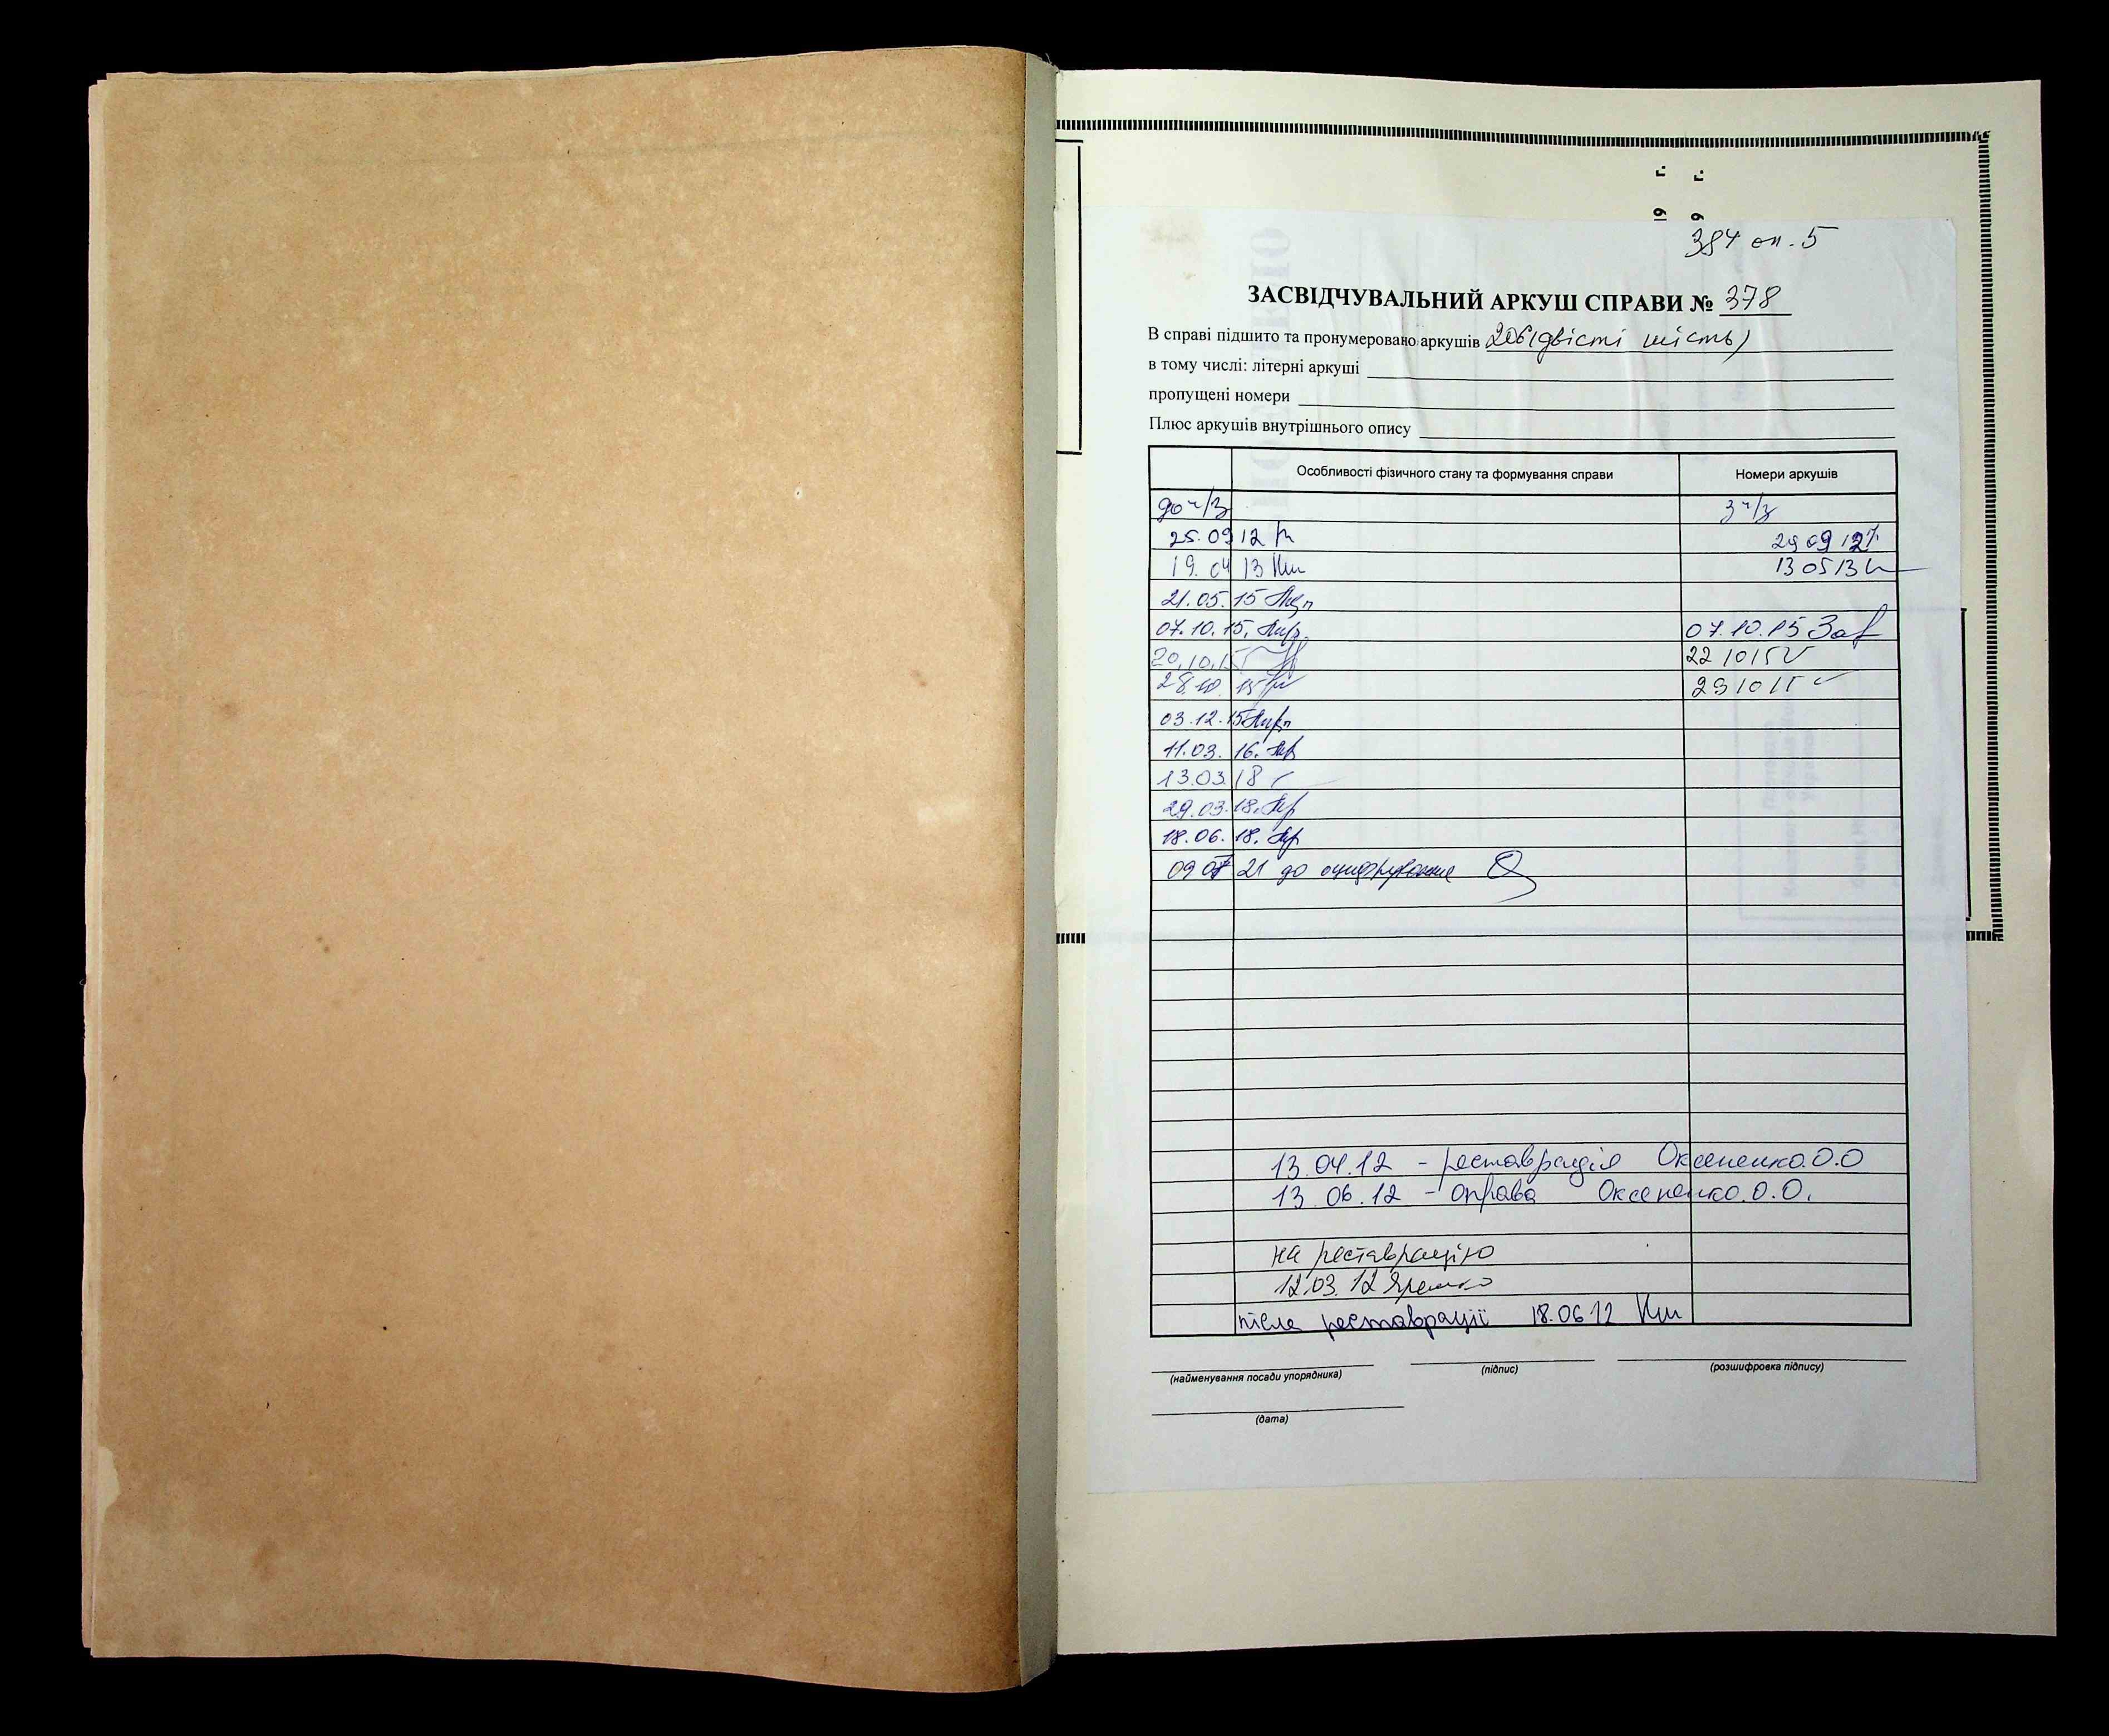 384 оп. 5
ЗАСВІДЧУВАЛЬНИЙ АРКУШ СПРАВИ № 378
В справі підшито та пронумеровано аркушів 206 (двісті шість)
в тому числі: літерні аркуші
пропущені номери
Плюс аркушів внутрішнього опису
Особливості фізичного стану та формування справи Номери аркушів
до ч/з з ч/з
25.09 12 29 09 12
19.04 13 13 05 13
21.05.15
07.10.15. 07.10.15
20.10.15 22 10 15
28.10.15 29 10 15
03.12.15
11.03.16.
13.03.18
29.03.18.
18.06.18.
09 07 21 до оцифрування
13.04.12 - реставрація Оксененко.О.О
13.06.12 - оправа Оксененко.О.О.
на реставрацію
12.03.12 Яремко
після реставрації 18.06 12
(найменування посади упорядника) (підпис) (розшифровка підпису)
(дата)